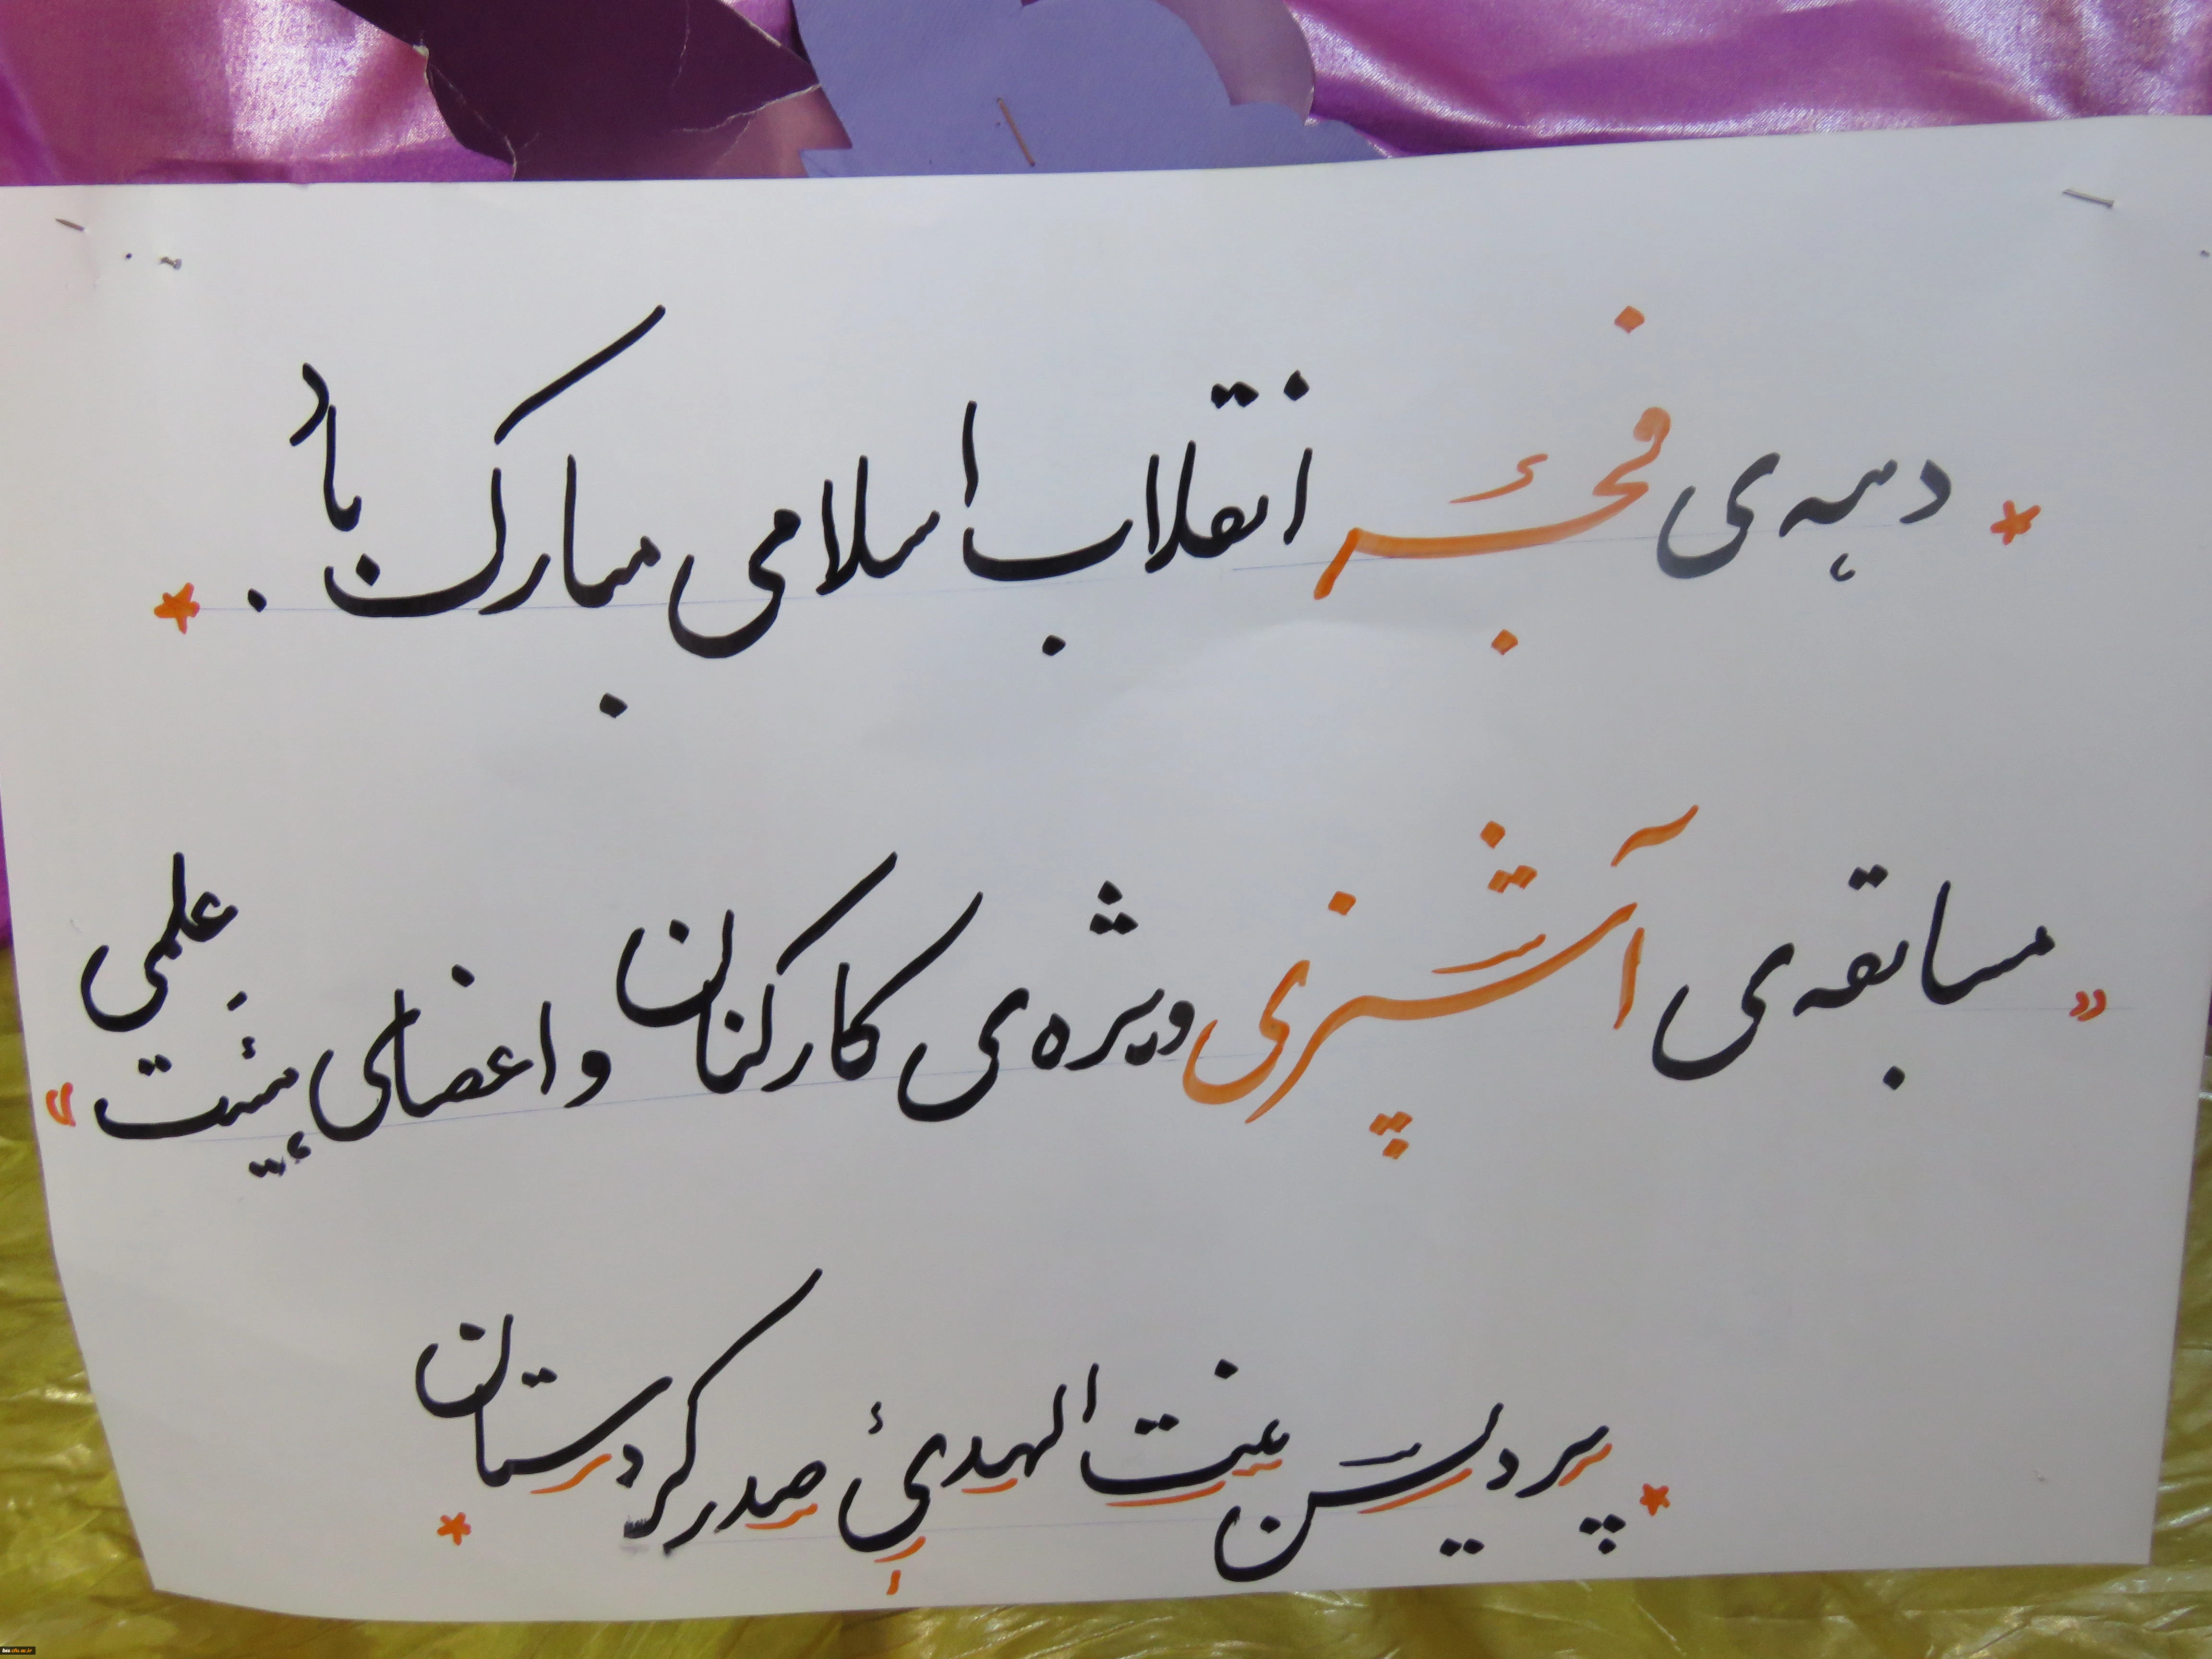 * دهه‌ی فجر انقلاب اسلامی مبارک باد . *
«مسابقه‌ی آشپزی ویژه‌ی کارکنان و اعضای هیئت علمی»
* پردیس بنت الهدیٰ صدر کردستان *